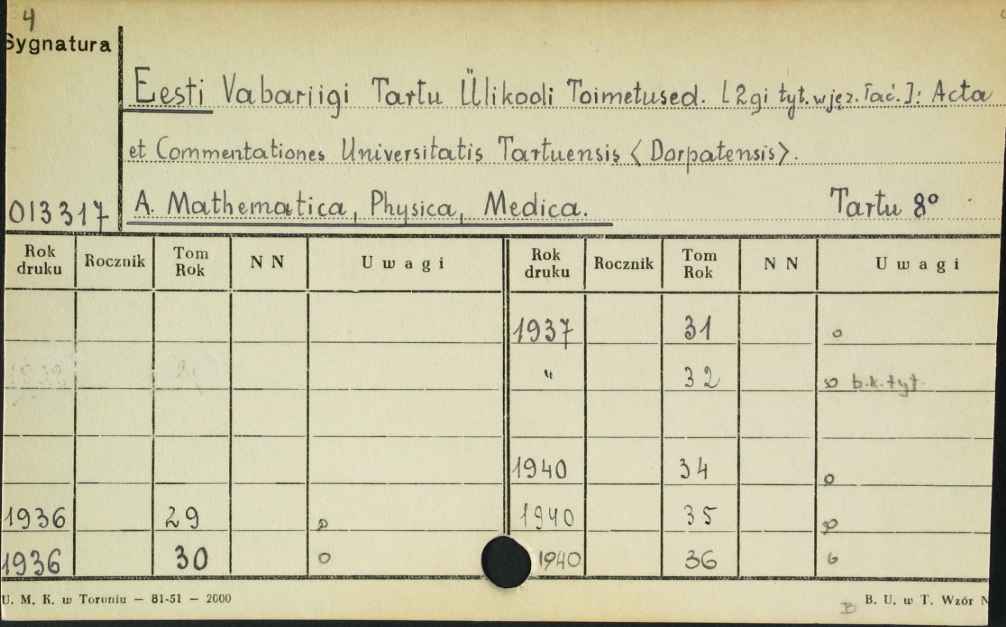 4
Sygnatura
Eesti Vabariigi Tartu Ülikooli Toimetused. [2gi tyt. w jęz. łać.]: Acta
et Commentationes Universitatis Tartuensis <Dorpatensis>.
013317 A. Mathematica, Physica, Medica. Tartu 8°
Rok druku Rocznik Tom Rok NN Uwagi Rok druku Rocznik Tom Rok NN Uwagi
1937 31 o
" 32 b.k.tyt.
1940 34
1936 29 1940 35
1936 30 o 1940 36
U. M. K. w Toruniu — 81-51 — 2000 B B. U. w T. Wzór N